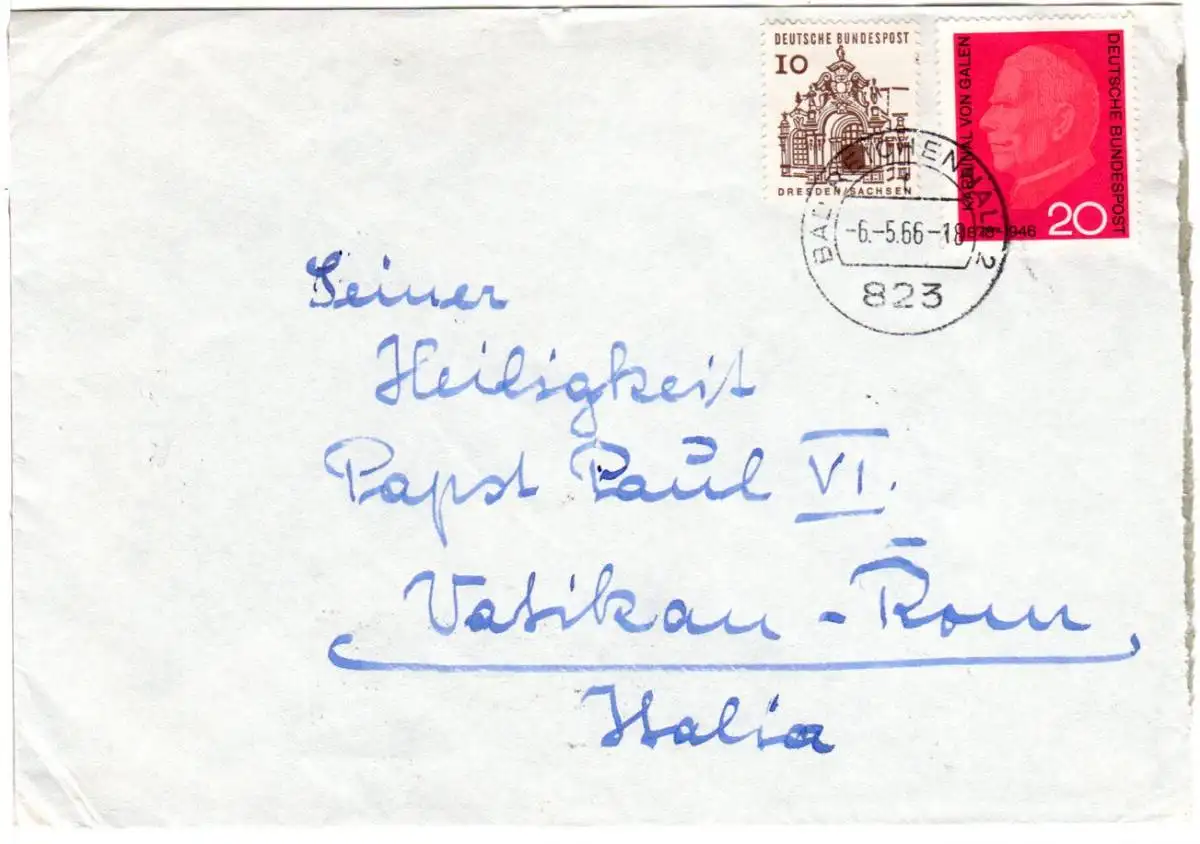 DEUTSCHE BUNDESPOST
10
DRESDEN/SACHSEN
KARDINAL VON GALEN
DEUTSCHE BUNDESPOST
1878-1946
20
-6.-5.66-18
823
Seiner
Heiligkeit
Papst Paul VI.
Vatikan - Rom
Italia